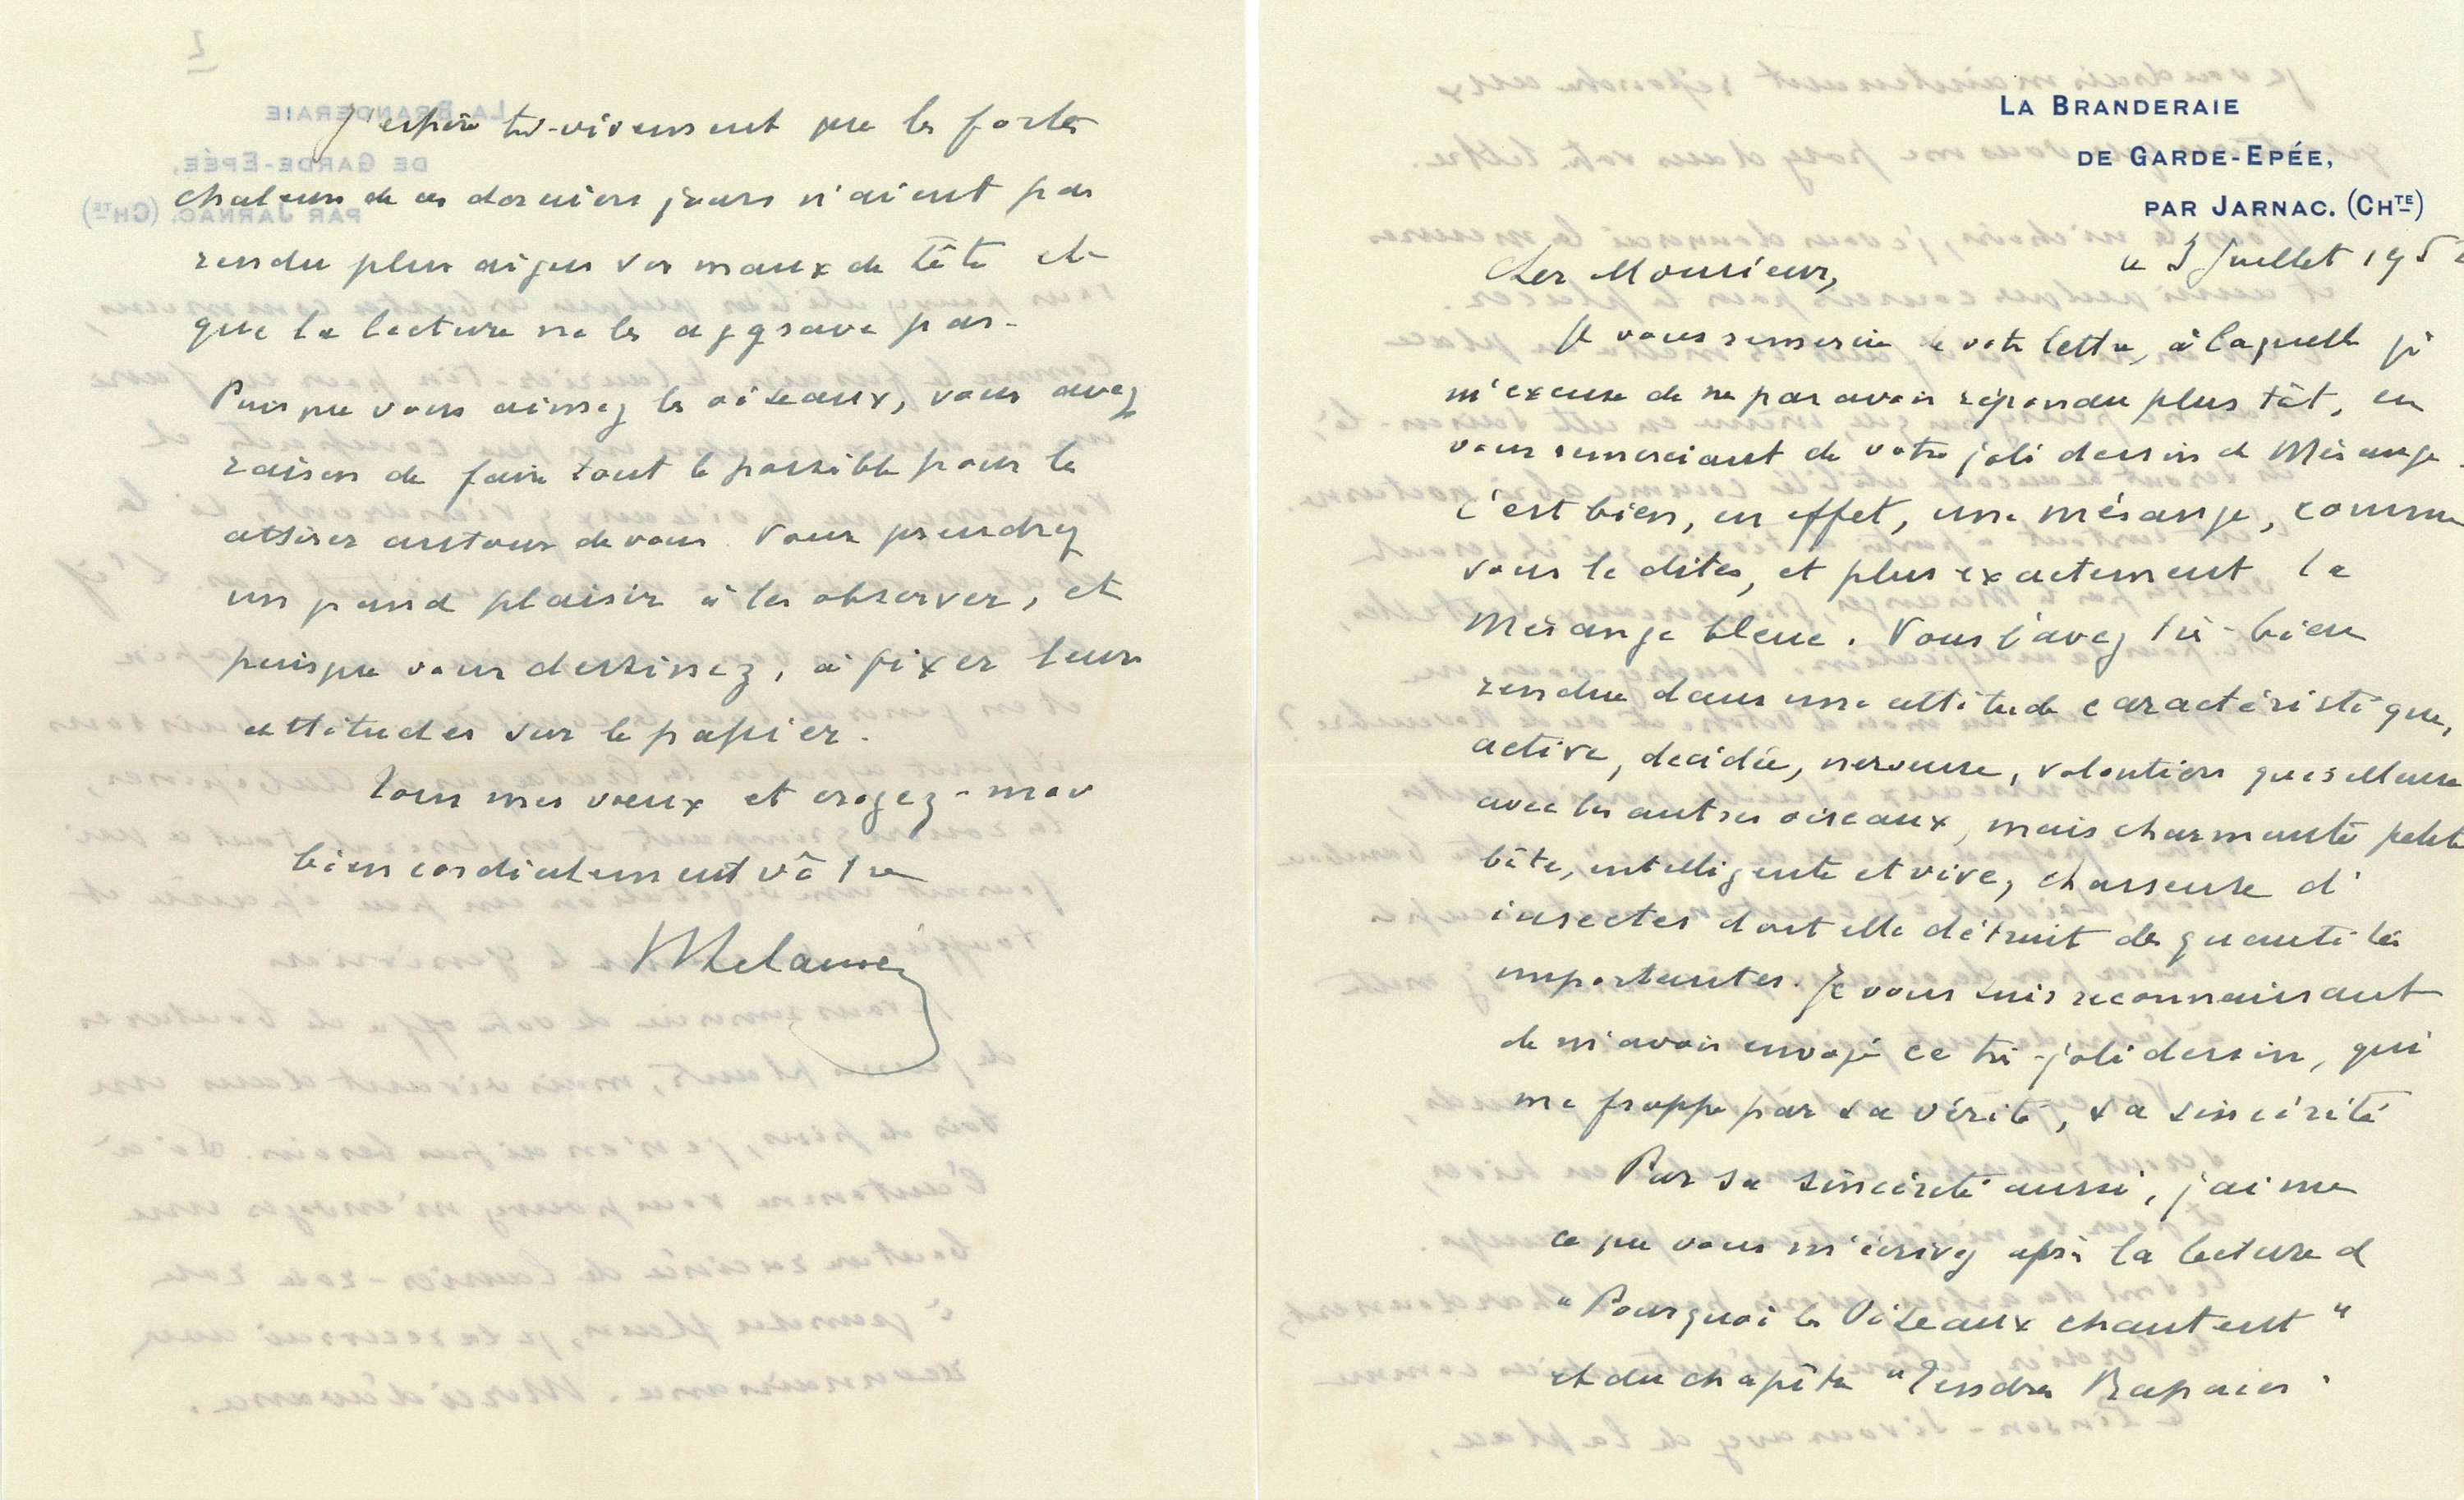 LA BRANDERAIE
DE GARDE-EPÉE,
PAR JARNAC. (CHTE)
le 3 Juillet 195
Cher Monsieur,
Je vous remercie de votre lettre, à laquelle je
m'excuse de ne pas avoir répondu plus tôt, en
vous remerciant de votre joli dessin de Mésange.
C'est bien, en effet, une mésange, comme
vous le dites, et plus exactement la
Mésange bleue. Vous l'avez très-bien
rendue dans une attitude caractéristique,
active, décidée, nerveuse, volontiers querelleuse
avec les autres oiseaux, mais charmante petite
bête, intelligente et vive, chasseuse d'
insectes dont elle détruit des quantités
importantes. Je vous suis reconnaissant
de m'avoir envoyé ce très-joli dessin, qui
me frappe par sa vérité, sa sincérité
Par sa sincérité aussi, j'aime
ce que vous m'écrivez après la lecture de
"Pourquoi les Oiseaux chantent"
et du chapitre "Tendres Rapaces"
J'espère très-vivement que les fortes
chaleurs de ces derniers jours n'aient pas
rendu plus aigus vos maux de tête et
que la lecture ne les aggrave pas.
Puisque vous aimez les oiseaux, vous avez
raison de faire tout le possible pour les
attirer autour de vous. Vous prendrez
un grand plaisir à les observer, et
puisque vous dessinez, à fixer leurs
attitudes sur le papier.
Tous mes voeux et croyez-moi
bien cordialement vôtre
Delamain